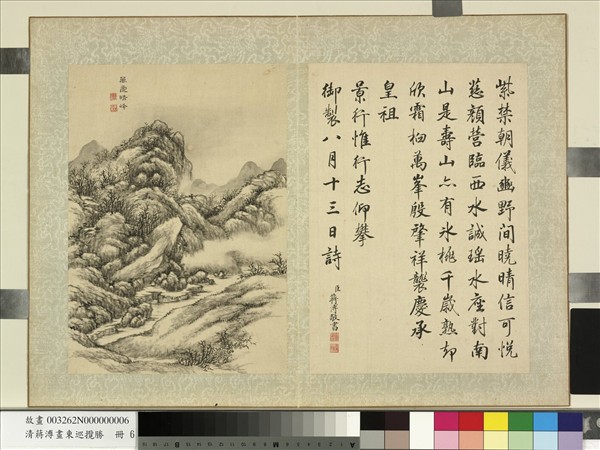 紫禁朝儀豳野間曉晴信可悅
慈顏營臨西水誠瑤水座對南
山是壽山亦有氷桃千歲熟却
欣霜栬萬峯殷肇祥製慶承
皇祖
景行惟行志仰攀
御製八月十三日詩
臣蔣溥敬書
晴峰
故畫 003262N000000006
清蔣溥畫東巡攬勝 冊 6